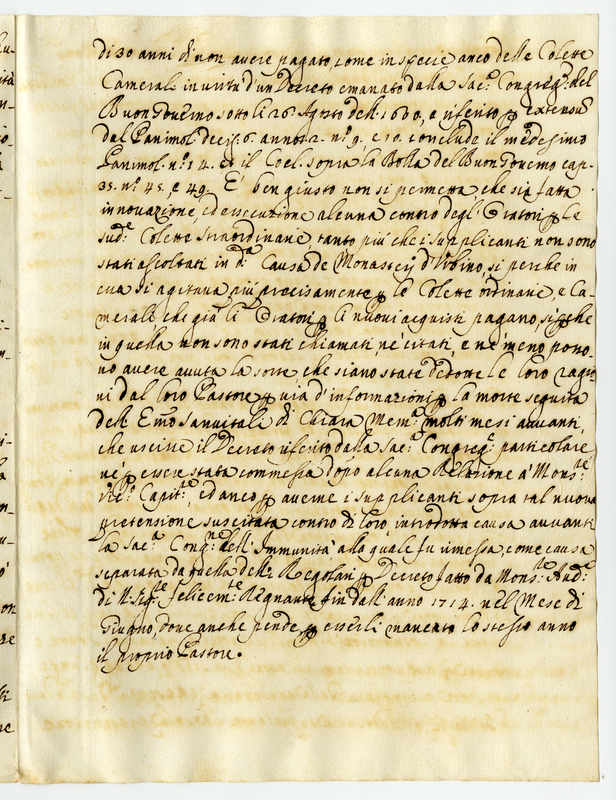 di 30 anni di non avere pagato, come in specie anco delle Colette
Camerali in virtù d'un Decreto emanato dalla Sac.ª Congreg.ⁿᵉ del
Buon Governo sotto li 26. Agosto dell. 1630, e riferito ꝑ extensum
dal Panimol. decis. 6. annot. 2. n.º 9. e 10. conclude il medesimo
Panimol. n.º 14. et il Coel. sopra la Bolla del Buon Governo cap.
35. n.º 45. e 49. E' ben giusto non si permetta, che sia fatta
innovazione, ed essecuzione alcuna contro degl' Oratori ꝑ le
sud.ᵉ Colette straordinarie tanto più che i supplicanti non sono
stati ascoltati in d.ª Causa de Monasterj d'Urbino, si perche in
essa si agitava più precisamente ꝑ le Colette ordinarie, e Ca-
merali che già li Oratori ꝑ li nuovi acquisti pagano, si perche
in quella non sono stati chiamati, ne' citati, e ne' meno pono-
no avere avuta la sorte che siano state dedotte le loro ragio
ni dal loro Pastore ꝑ via d'informazioni ꝑ la morte seguita
dell' Emo Sanvitali di Chiara Mem.ª molti mesi avvanti,
che uscisse il Decreto riferito dalla Sac.ª Congreg.ᵉ particolare,
ne' ꝑ essere stata commessa dopo alcuna Relazione a' Mons.ʳᵉ
Vic.º Capit.ʳᵉ, ed anco ꝑ averne i supplicanti sopra tal nuova
pretensione suscitata contro di loro, introdotta causa avvanti
la Sac.ª Cong.ⁿᵉ dell' Immunità alla quale fu rimessa, come causa
separata da quella delli Regolari ꝑ Decreto fatto da Mons.ʳᵉ Aud.ʳᵉ
di N. Sig.ʳᵉ felicem.ᵗᵉ Regnante fin dall' anno 1714. nel Mese di
Giugno, dove anche pende ꝑ esserli mancato lo stesso anno
il proprio Pastore.